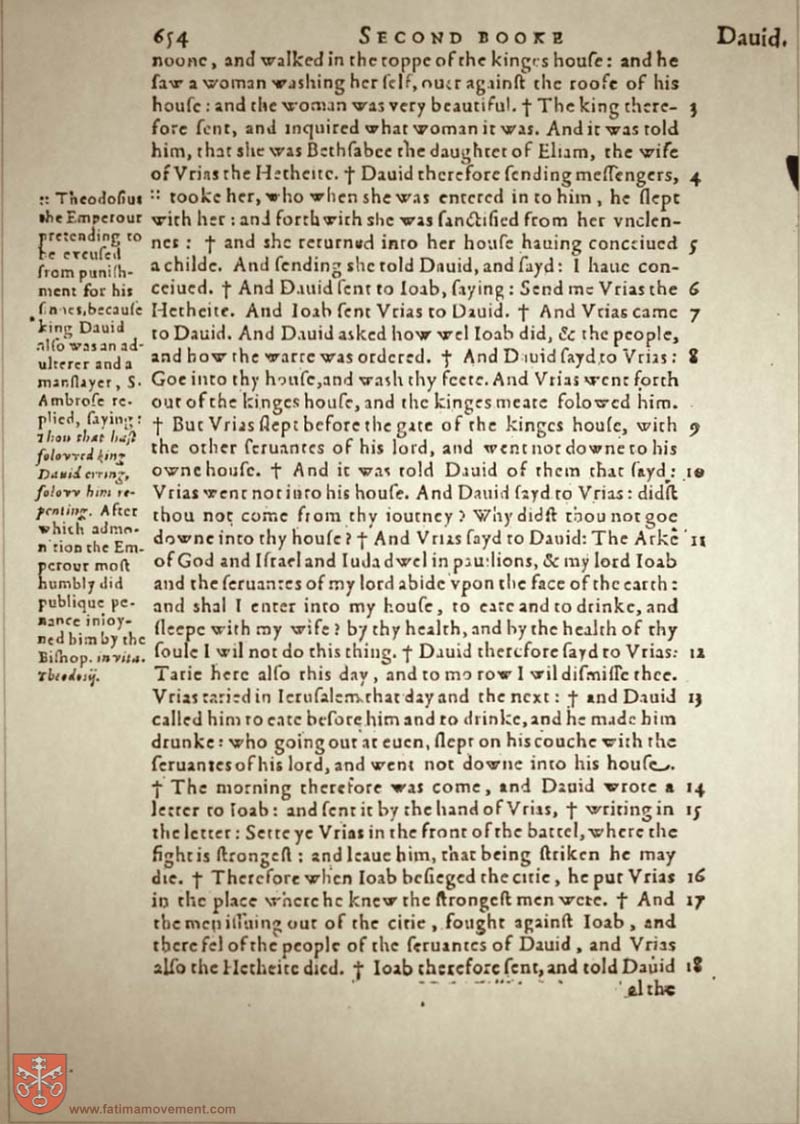 654 SECOND BOOKE Dauid.
noone, and walked in the toppe of the kinges houſe: and he
ſaw a woman waſhing her ſelf, ouer againſt the roofe of his
houſe: and the woman was very beautiful. † The king there- 3
fore ſent, and inquired what woman it was. And it was told
him, that she was Bethſabee the daughter of Eliam, the wife
of Vrias the Hetheite. † Dauid therefore ſending meſſengers, 4
:: tooke her, who when she was entered in to him, he ſlept
with her: and forthwith she was ſanctified from her vnclen-
nes: † and she returned into her houſe hauing conceiued 5
a childe. And ſending she told Dauid, and ſayd: I haue con-
ceiued. † And Dauid ſent to Ioab, ſaying: Send me Vrias the 6
Hetheite. And Ioab ſent Vrias to Dauid. † And Vrias came 7
to Dauid. And Dauid asked how wel Ioab did, & the people,
and how the warre was ordered. † And Dauid ſayd to Vrias: 8
Goe into thy houſe, and wash thy feete. And Vrias went forth
out of the kinges houſe, and the kinges meate folowed him.
† But Vrias ſlept before the gate of the kinges houſe, with 9
the other ſeruantes of his lord, and went not downe to his
owne houſe. † And it was told Dauid of them that ſayd: 10
Vrias went not into his houſe. And Dauid ſayd to Vrias: didſt
thou not come from thy iourney? Why didſt thou not goe
downe into thy houſe? † And Vrias ſayd to Dauid: The Arke 11
of God and Iſrael and Iuda dwel in pauilions, & my lord Ioab
and the ſeruantes of my lord abide vpon the face of the earth:
and shal I enter into my houſe, to eate and to drinke, and
ſleepe with my wife? by thy health, and by the health of thy
ſoule I wil not do this thing. † Dauid therefore ſayd to Vrias: 12
Tarie here alſo this day, and to morow I wil diſmiſſe thee.
Vrias taried in Ieruſalem that day and the next: † and Dauid 13
called him to eate before him and to drinke, and he made him
drunke: who going out at euen, ſlept on his couche with the
ſeruantes of his lord, and went not downe into his houſe.
† The morning therefore was come, and Dauid wrote a 14
letter to Ioab: and ſent it by the hand of Vrias, † writing in 15
the letter: Sette ye Vrias in the front of the battel, where the
fight is ſtrongeſt: and leaue him, that being ſtriken he may
die. † Therefore when Ioab beſieged the citie, he put Vrias 16
in the place where he knew the ſtrongeſt men were. † And 17
the men iſſuing out of the citie, fought againſt Ioab, and
there fel of the people of the ſeruantes of Dauid, and Vrias
alſo the Hetheite died. † Ioab therefore ſent, and told Dauid 18
al the
:: Theodoſius
the Emperour
pretending to
be excuſed
from puniſh-
ment for his
ſinnes, becauſe
king Dauid
alſo was an ad-
ulterer and a
manſlayer, S.
Ambroſe re-
plied, ſaying:
Thou that haſt
folovved king
Dauid erring,
folovv him re-
penting. After
which admo-
nition the Em-
perour moſt
humbly did
publique pe-
nance inioy-
ned him by the
Biſhop. in vita.
Theodosij.
www.fatimamovement.com